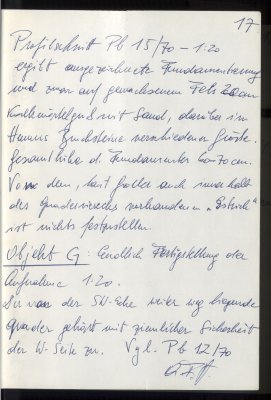 17.
Profilschnitt Pb 15/70 – 1:20
ergibt ausgezeichnete Fundamentierung
und zwar auf gewachsenem Fels 20cm
mit Sand, darüber im
Humus Bruchsteine verschiedener Größe.
Gesamthöhe d. Fundamentes 70 cm.
Von dem, laut Groller auch innerhalb
des Quadervierecks vorhandenen "Estrich"
ist nichts festzustellen.
Objekt G: Endlich Fertigstellung der
Aufnahme 1:20.
Der von der SW-Ecke weiter weg liegende
Quader gehört mit ziemlicher Sicherheit
der W-Seite zu. Vgl. Pb 12/70